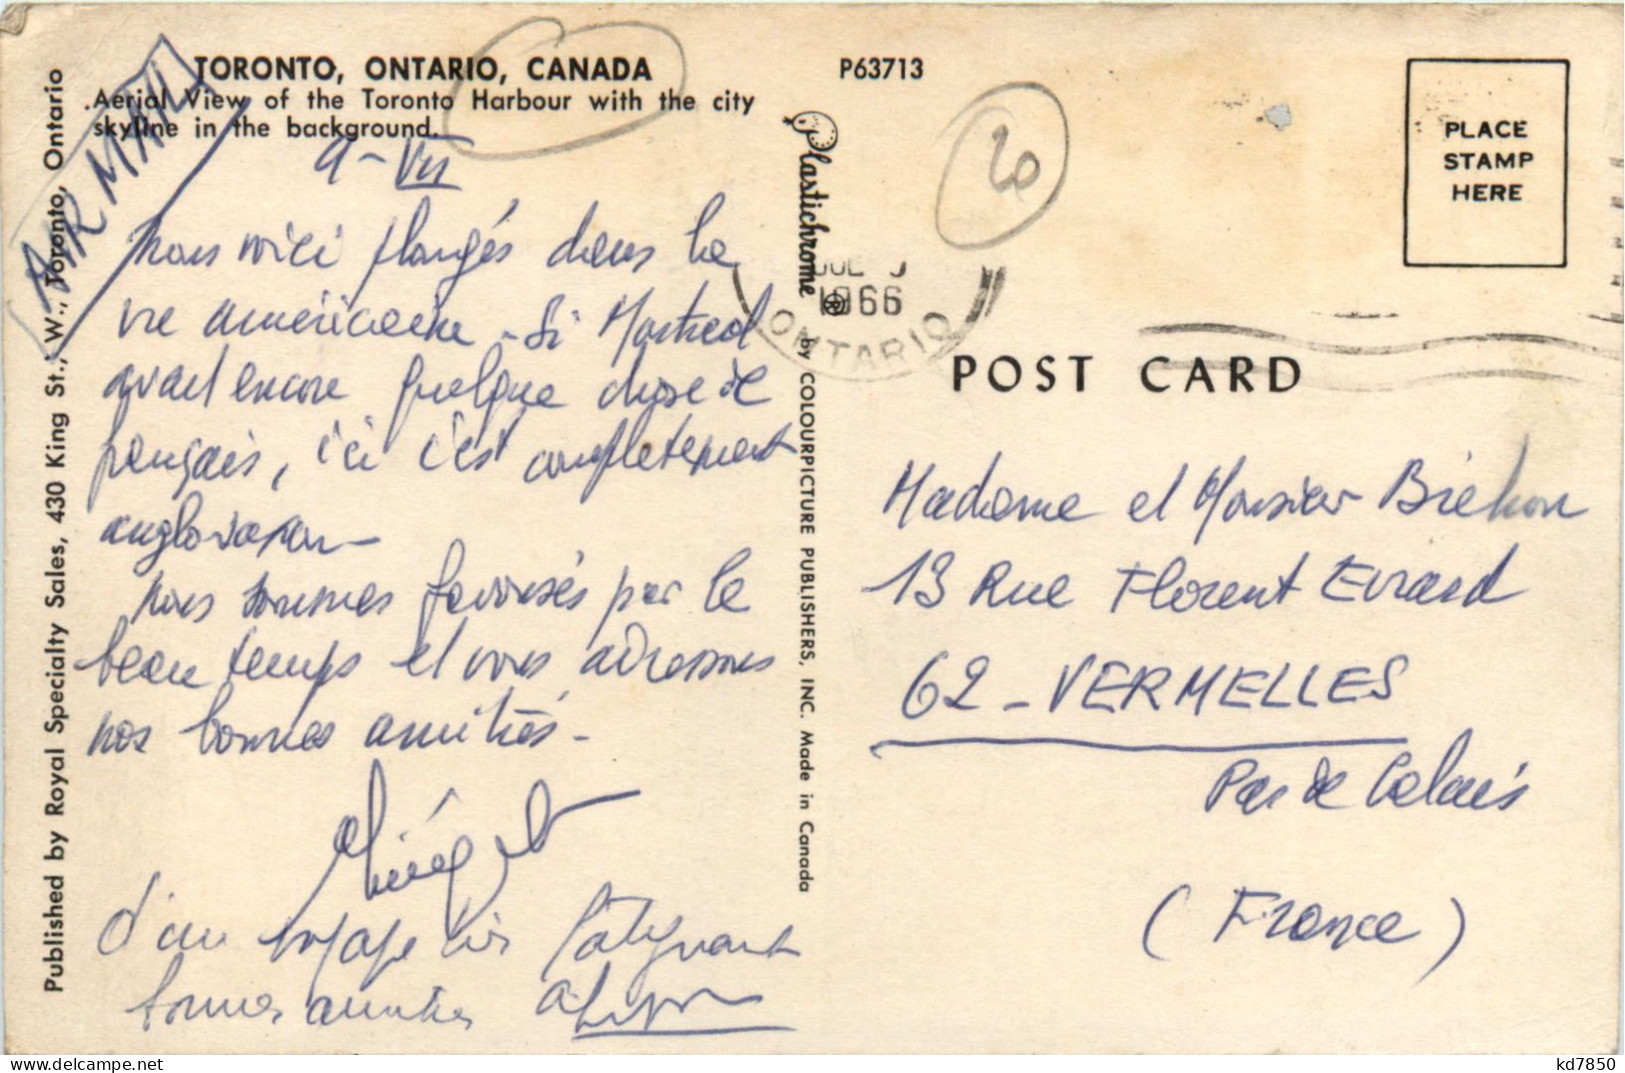 TORONTO, ONTARIO, CANADA
Aerial View of the Toronto Harbour with the city
skyline in the background.
AIR MAIL
9-VII
nous voici plongés dans la
vie américaine - Si Montreal
avait encore quelque chose de
français, ici c'est complètement
anglosaxon -
nous sommes favorisés par le
beau temps et vous adressons
nos bonnes amitiés -
d'un voyage très fatiguant
bonnes amitiés
Published by Royal Specialty Sales, 430 King St., W., Toronto, Ontario
Plastichrome by COLOURPICTURE PUBLISHERS, INC. Made in Canada
P63713
20
1966
ONTARIO
PLACE
STAMP
HERE
POST CARD
Madame et Monsieur
13 Rue Florent Evrard
62 - VERMELLES
Pas de Calais
(France)
kd7850
delcampe.net